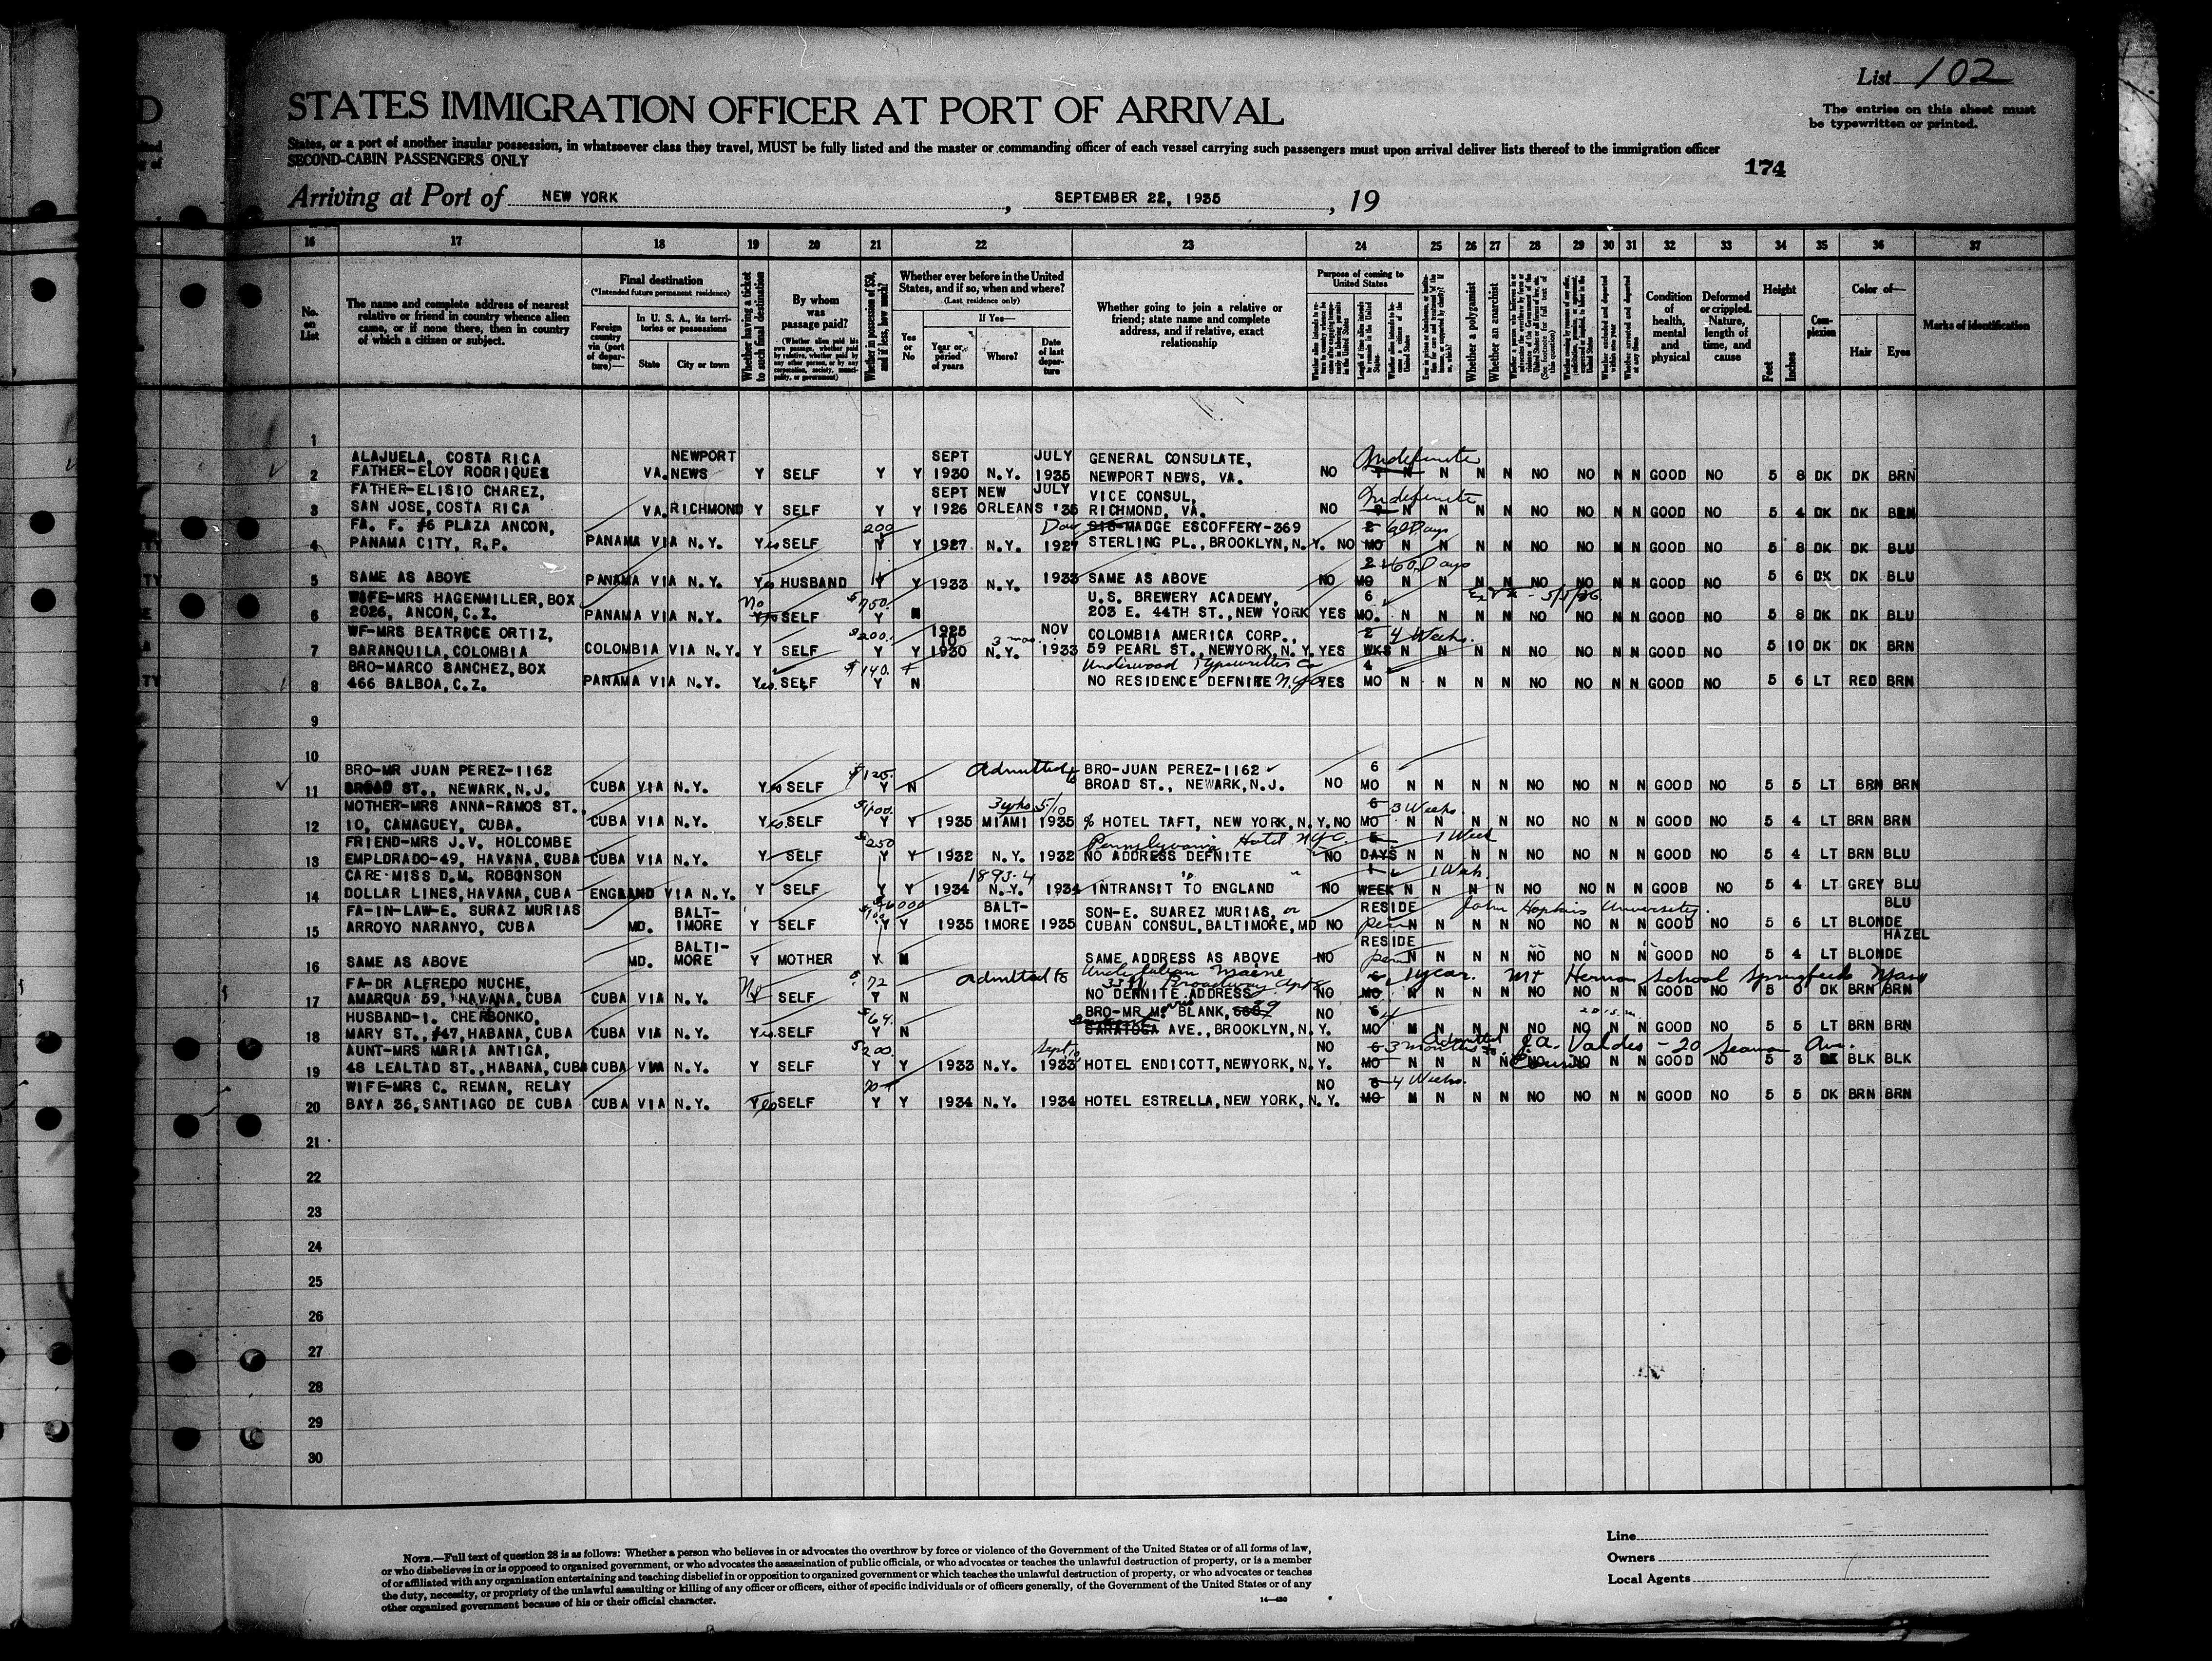 List 102
STATES IMMIGRATION OFFICER AT PORT OF ARRIVAL
The entries on this sheet must
be typewritten or printed.
States, or a port of another insular possession, in whatsoever class they travel, MUST be fully listed and the master or commanding officer of each vessel carrying such passengers must upon arrival deliver lists thereof to the immigration officer
SECOND-CABIN PASSENGERS ONLY
174
Arriving at Port of NEW YORK, SEPTEMBER 22, 1935, 19
16 17 18 19 20 21 22 23 24 25 26 27 28 29 30 31 32 33 34 35 36 37
No. on List
The name and complete address of nearest relative or friend in country whence alien came, or if none there, then in country of which a citizen or subject.
Final destination
(*Intended future permanent residence)
Foreign country via (port of departure)—
In U. S. A., its territories or possessions
State
City or town
Whether having a ticket to such final destination
By whom was passage paid?
(Whether alien paid his own passage, whether paid by relative, whether paid by any other person, or by any corporation, society, municipality, or government)
Whether in possession of $50, and if less, how much?
Whether ever before in the United States, and if so, when and where?
(Last residence only)
Yes or No
If Yes—
Year or period of years
Where?
Date of last departure
Whether going to join a relative or friend; state name and complete address, and if relative, exact relationship
Purpose of coming to United States
Whether a polygamist
Whether an anarchist
Condition of health, mental and physical
Deformed or crippled. Nature, length of time, and cause
Height
Feet
Inches
Complexion
Color of—
Hair
Eyes
Marks of identification
1
ALAJUELA, COSTA RICA NEWPORT SEPT JULY GENERAL CONSULATE, Indefinite
2 FATHER-ELOY RODRIQUEZ VA. NEWS Y SELF Y Y 1930 N.Y. 1935 NEWPORT NEWS, VA. NO N N N N NO NO N N GOOD NO 5 8 DK DK BRN
FATHER-ELISIO CHAREZ, SEPT NEW JULY VICE CONSUL, Indefinite
3 SAN JOSE, COSTA RICA VA. RICHMOND Y SELF Y Y 1926 ORLEANS '35 RICHMOND, VA. NO N N N N NO NO N N GOOD NO 5 4 DK DK BRN
FA. F. #6 PLAZA ANCON, 200 MADGE ESCOFFERY-369 2 60 Days
4 PANAMA CITY, R.P. PANAMA VIA N.Y. Yes SELF Y Y 1927 N.Y. 1927 STERLING PL., BROOKLYN, N.Y. NO MO N N N N NO NO N N GOOD NO 5 8 DK DK BLU
2 60 Days
5 SAME AS ABOVE PANAMA VIA N.Y. Yes HUSBAND Y Y 1933 N.Y. 1933 SAME AS ABOVE NO MO N N N N NO NO N N GOOD NO 5 6 DK DK BLU
WIFE-MRS HAGENMILLER, BOX No $750. U.S. BREWERY ACADEMY, 6
6 2026, ANCON, C.Z. PANAMA VIA N.Y. SELF Y N 203 E. 44TH ST., NEW YORK YES MO. N N N N NO NO N N GOOD NO 5 8 DK DK BLU
WF-MRS BEATRUCE ORTIZ, $200. 1925 NOV COLOMBIA AMERICA CORP., 2 4 Weeks.
7 BARANQUILA, COLOMBIA COLOMBIA VIA N.Y. Y SELF Y Y 1930 N.Y. 1933 59 PEARL ST., NEWYORK, N.Y. YES WKS N N N N NO NO N N GOOD NO 5 10 DK DK BRN
BRO-MARCO SANCHEZ, BOX $140. Underwood Typewriter Co 4
8 466 BALBOA, C.Z. PANAMA VIA N.Y. Yes. SELF Y N NO RESIDENCE DEFNITE N.Y.C. YES MO N N N N NO NO N N GOOD NO 5 6 LT RED BRN
9
10
BRO-MR JUAN PEREZ-1162 $125. Admitted to BRO-JUAN PEREZ-1162 6
11 BROAD ST., NEWARK, N.J. CUBA VIA N.Y. Yes SELF Y N BROAD ST., NEWARK, N.J. NO MO N N N N NO NO N N GOOD NO 5 5 LT BRN BRN
MOTHER-MRS ANNA-RAMOS ST., $100. 5/10 6 3 Weeks
12 10, CAMAGUEY, CUBA. CUBA VIA N.Y. Yes. SELF Y Y 1935 MIAMI 1935 % HOTEL TAFT, NEW YORK, N.Y. NO MO N N N N NO NO N N GOOD NO 5 4 LT BRN BRN
FRIEND-MRS J.V. HOLCOMBE $250 Pennsylvania Hotel N.Y.C. 1 Week
13 EMPLDRADO-49, HAVANA, CUBA CUBA VIA N.Y. Y SELF Y Y 1932 N.Y. 1932 NO ADDRESS DEFNITE NO DAYS N N N N NO NO N N GOOD NO 5 4 LT BRN BLU
CARE-MISS D.M. ROBONSON 1893-4 1 1 Week.
14 DOLLAR LINES, HAVANA, CUBA ENGLAND VIA N.Y. Y SELF Y Y 1934 N.Y. 1934 INTRANSIT TO ENGLAND NO WEEK N N N N NO NO N N GOOD NO 5 4 LT GREY BLU
FA-IN-LAW-E. SURAZ MURIAS BALT- BALT- SON-E. SUAREZ MURIAS, or RESIDE John Hopkins University. BLU
15 ARROYO NARANYO, CUBA MD. IMORE Y SELF Y Y 1935 IMORE 1935 CUBAN CONSUL, BALTIMORE, MD NO perm N N N N NO NO N N GOOD NO 5 6 LT BLONDE
BALTI- RESIDE HAZEL
16 SAME AS ABOVE MD. MORE Y MOTHER Y N SAME ADDRESS AS ABOVE NO perm N N N N NO NO N N GOOD NO 5 4 LT BLONDE
FA-DR ALFREDO NUCHE, No $72 admitted to Uncle Julian 1 year. Mt Hermon School Springfield Mass
17 AMARQUA 59, HAVANA, CUBA CUBA VIA N.Y. Y SELF Y N NO DENNITE ADDRESS NO MO N N N N NO NO N N GOOD NO 5 8 DK BRN BRN
HUSBAND-I. CHERBONKO, $64. BRO-MR M. BLANK, 6
18 MARY ST., #47, HABANA, CUBA CUBA VIA N.Y. Yes. SELF Y N SARATOGA AVE., BROOKLYN, N.Y. NO MO N N N N NO NO N N GOOD NO 5 5 LT BRN BRN
AUNT-MRS MARIA ANTIGA, $200. Sept 6 3 months Admitted to J.A. Valdes - 20 Seaman Av.
19 48 LEALTAD ST., HABANA, CUBA CUBA VIA N.Y. Y SELF Y Y 1933 N.Y. 1933 HOTEL ENDICOTT, NEWYORK, N.Y. NO MO N N N N Cousin NO N N GOOD NO 5 3 DK BLK BLK
WIFE-MRS C. REMAN, RELAY 6 4 Weeks.
20 BAYA 36, SANTIAGO DE CUBA CUBA VIA N.Y. Yes SELF Y Y 1934 N.Y. 1934 HOTEL ESTRELLA, NEW YORK, N.Y. NO MO N N N N NO NO N N GOOD NO 5 5 DK BRN BRN
21
22
23
24
25
26
27
28
29
30
Line
Owners
Local Agents
NOTE.—Full text of question 28 is as follows: Whether a person who believes in or advocates the overthrow by force or violence of the Government of the United States or of all forms of law,
or who disbelieves in or is opposed to organized government, or who advocates the assassination of public officials, or who advocates or teaches the unlawful destruction of property, or is a member
of or affiliated with any organization entertaining and teaching disbelief in or opposition to organized government or which teaches the unlawful destruction of property, or who advocates or teaches
the duty, necessity, or propriety of the unlawful assaulting or killing of any officer or officers, either of specific individuals or of officers generally, of the Government of the United States or of any
other organized government because of his or their official character.
14—430